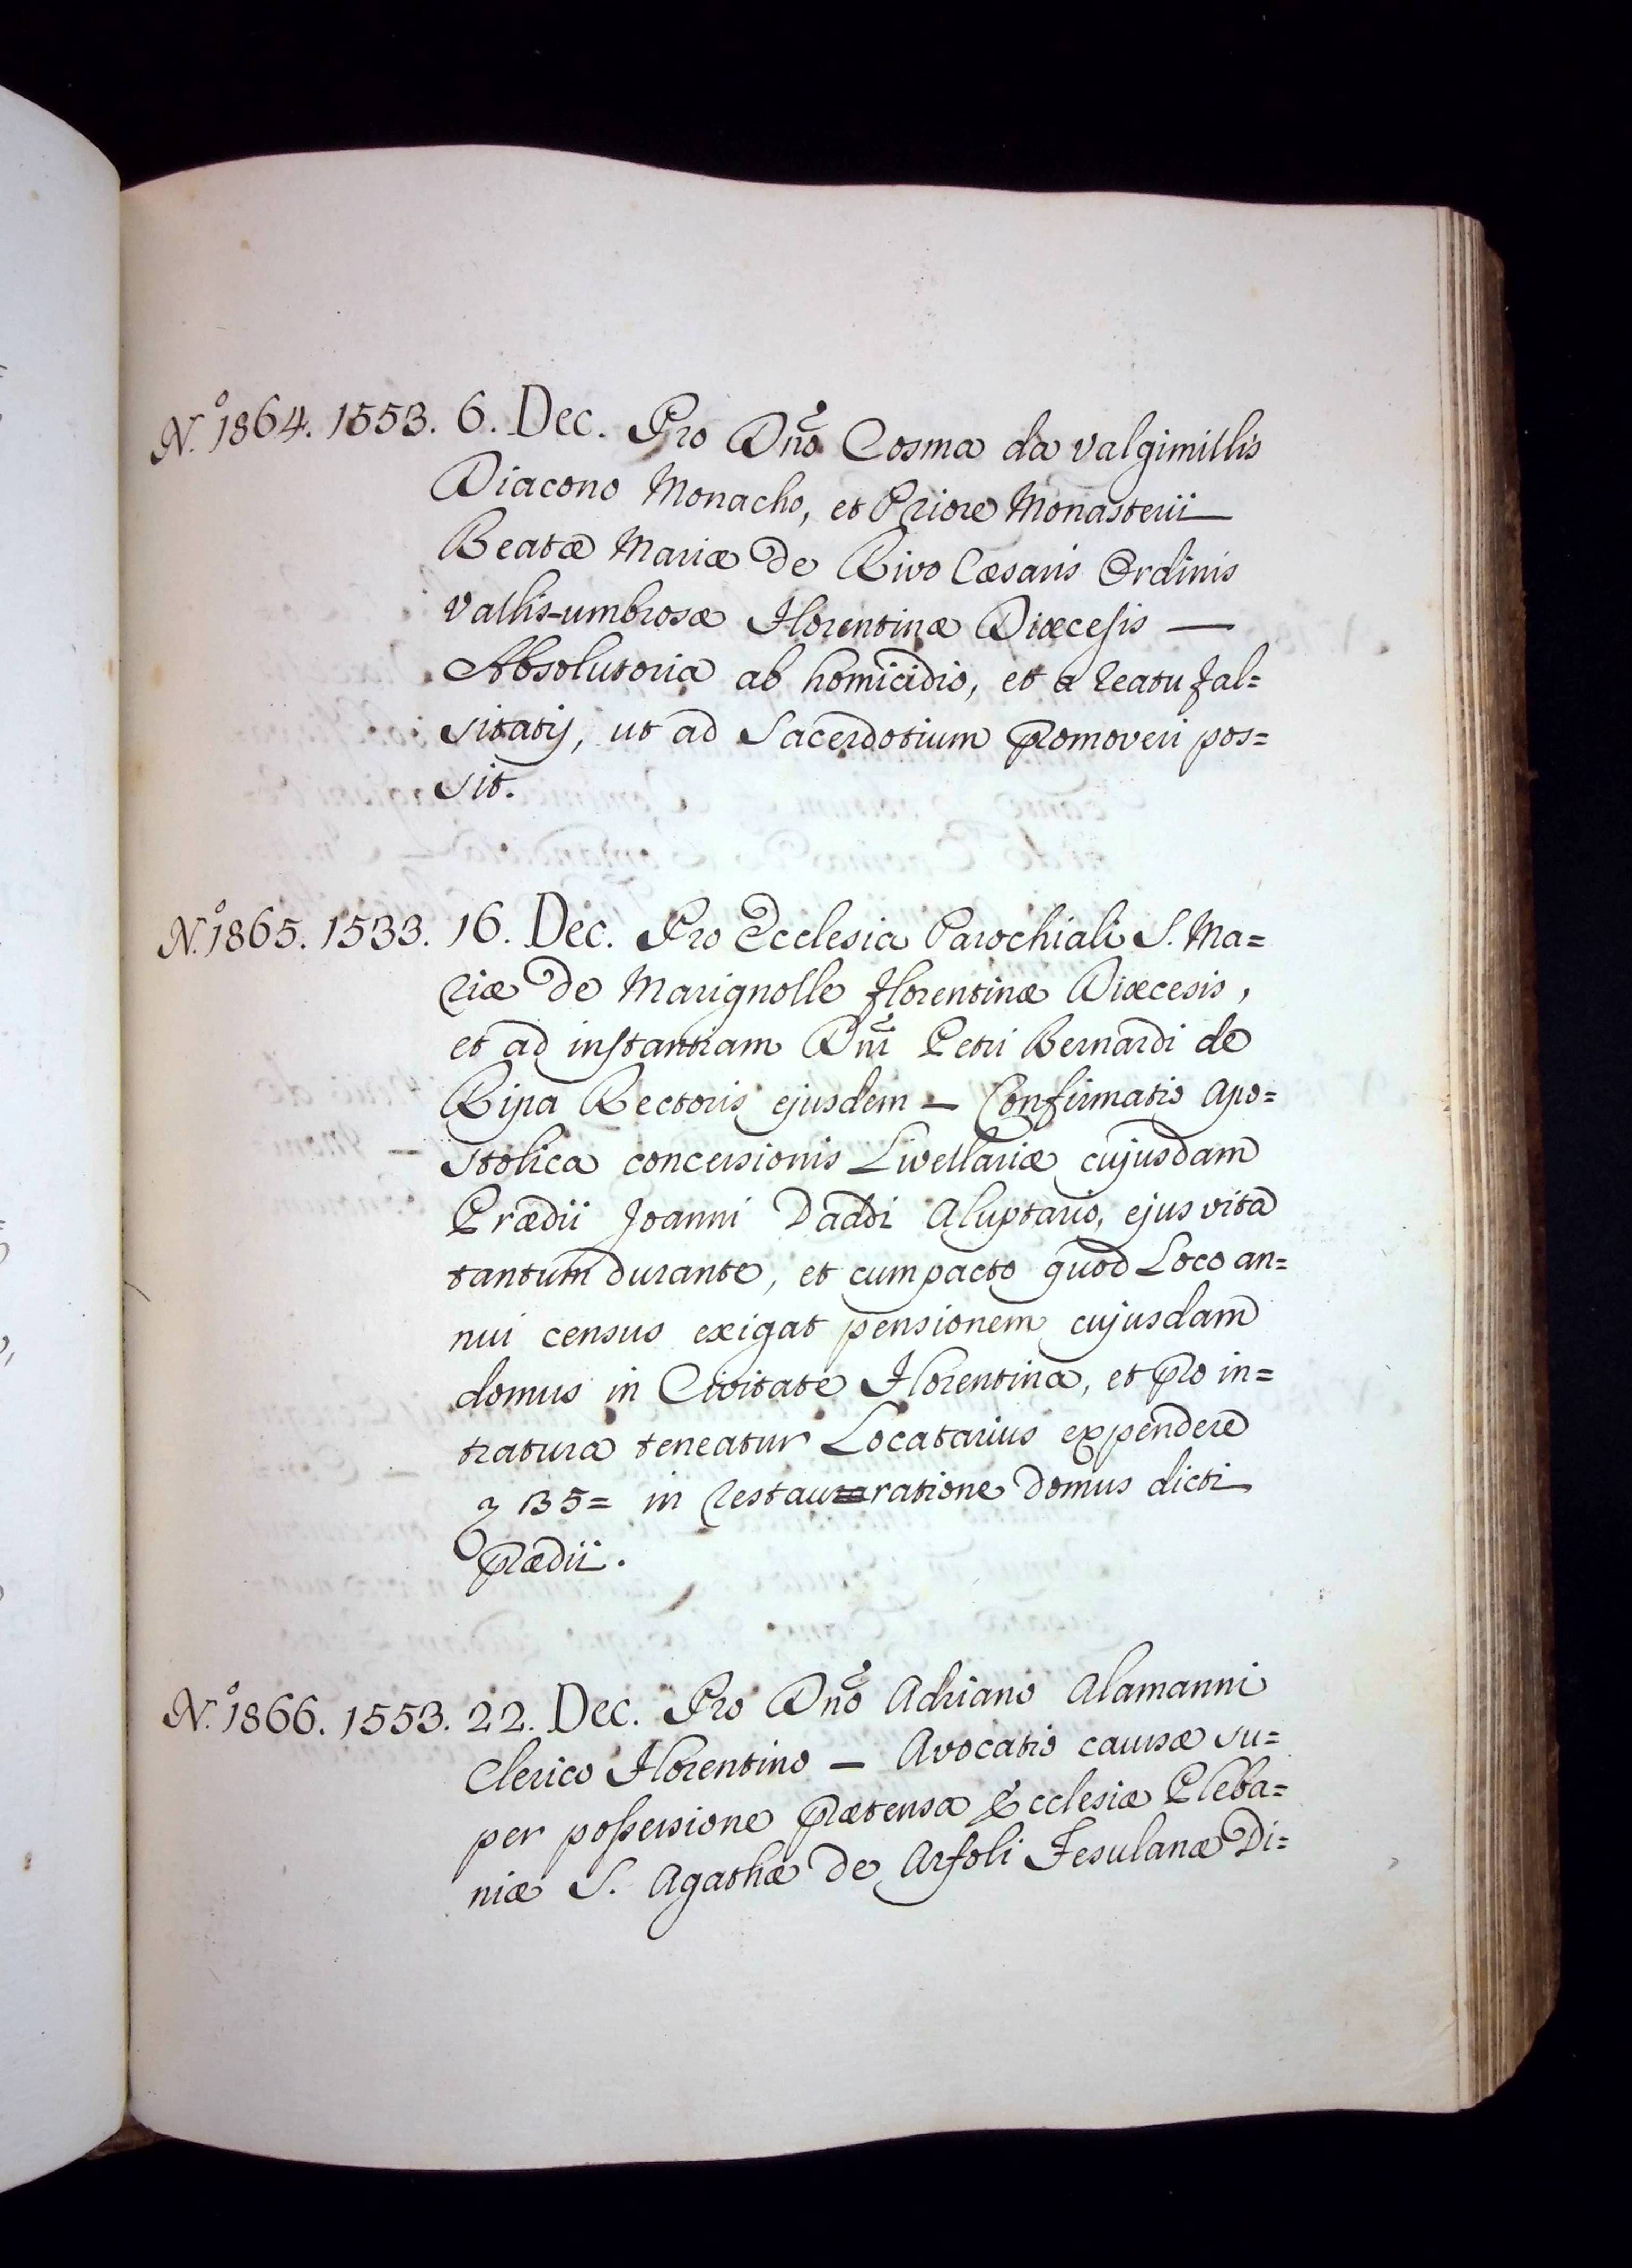 N.º 1864. 1553. 6. Dec. Pro Dño Cosma da Valgimillis
Diacono Monacho, et Priore Monasterii
Beatæ Mariæ de Rivo Cæsaris Ordinis
Vallis-umbrosæ Florentinæ Diæcesis —
Absolutoria ab homicidio, et a reatu fal=
sitatis, ut ad Sacerdotium promoveri pos=
sit.
N.º 1865. 1533. 16. Dec. Pro Ecclesia Parochiali S. Ma=
riæ de Marignolle Florentinæ Diæcesis,
et ad instantiam Dñi Petri Bernardi de
Ripa Rectoris ejusdem — Confirmatio Apo=
stolica concessionis Livellariæ cujusdam
Prædii Joanni Daddi Aluptario, ejus vita
tantum durante, et cum pacto quod Loco an=
nui census exigat pensionem cujusdam
domus in Civitate Florentina, et pro in=
tratura teneatur Locatarius expendere
135= in restauratione domus dicti
prædii.
N.º 1866. 1553. 22. Dec. Pro Dño Adriano Alamanni
Clerico Florentino — Avocatio causæ su=
per possessione prætensa Ecclesiæ Pleba=
niæ S. Agathæ de Arfoli Fesulanæ Di=